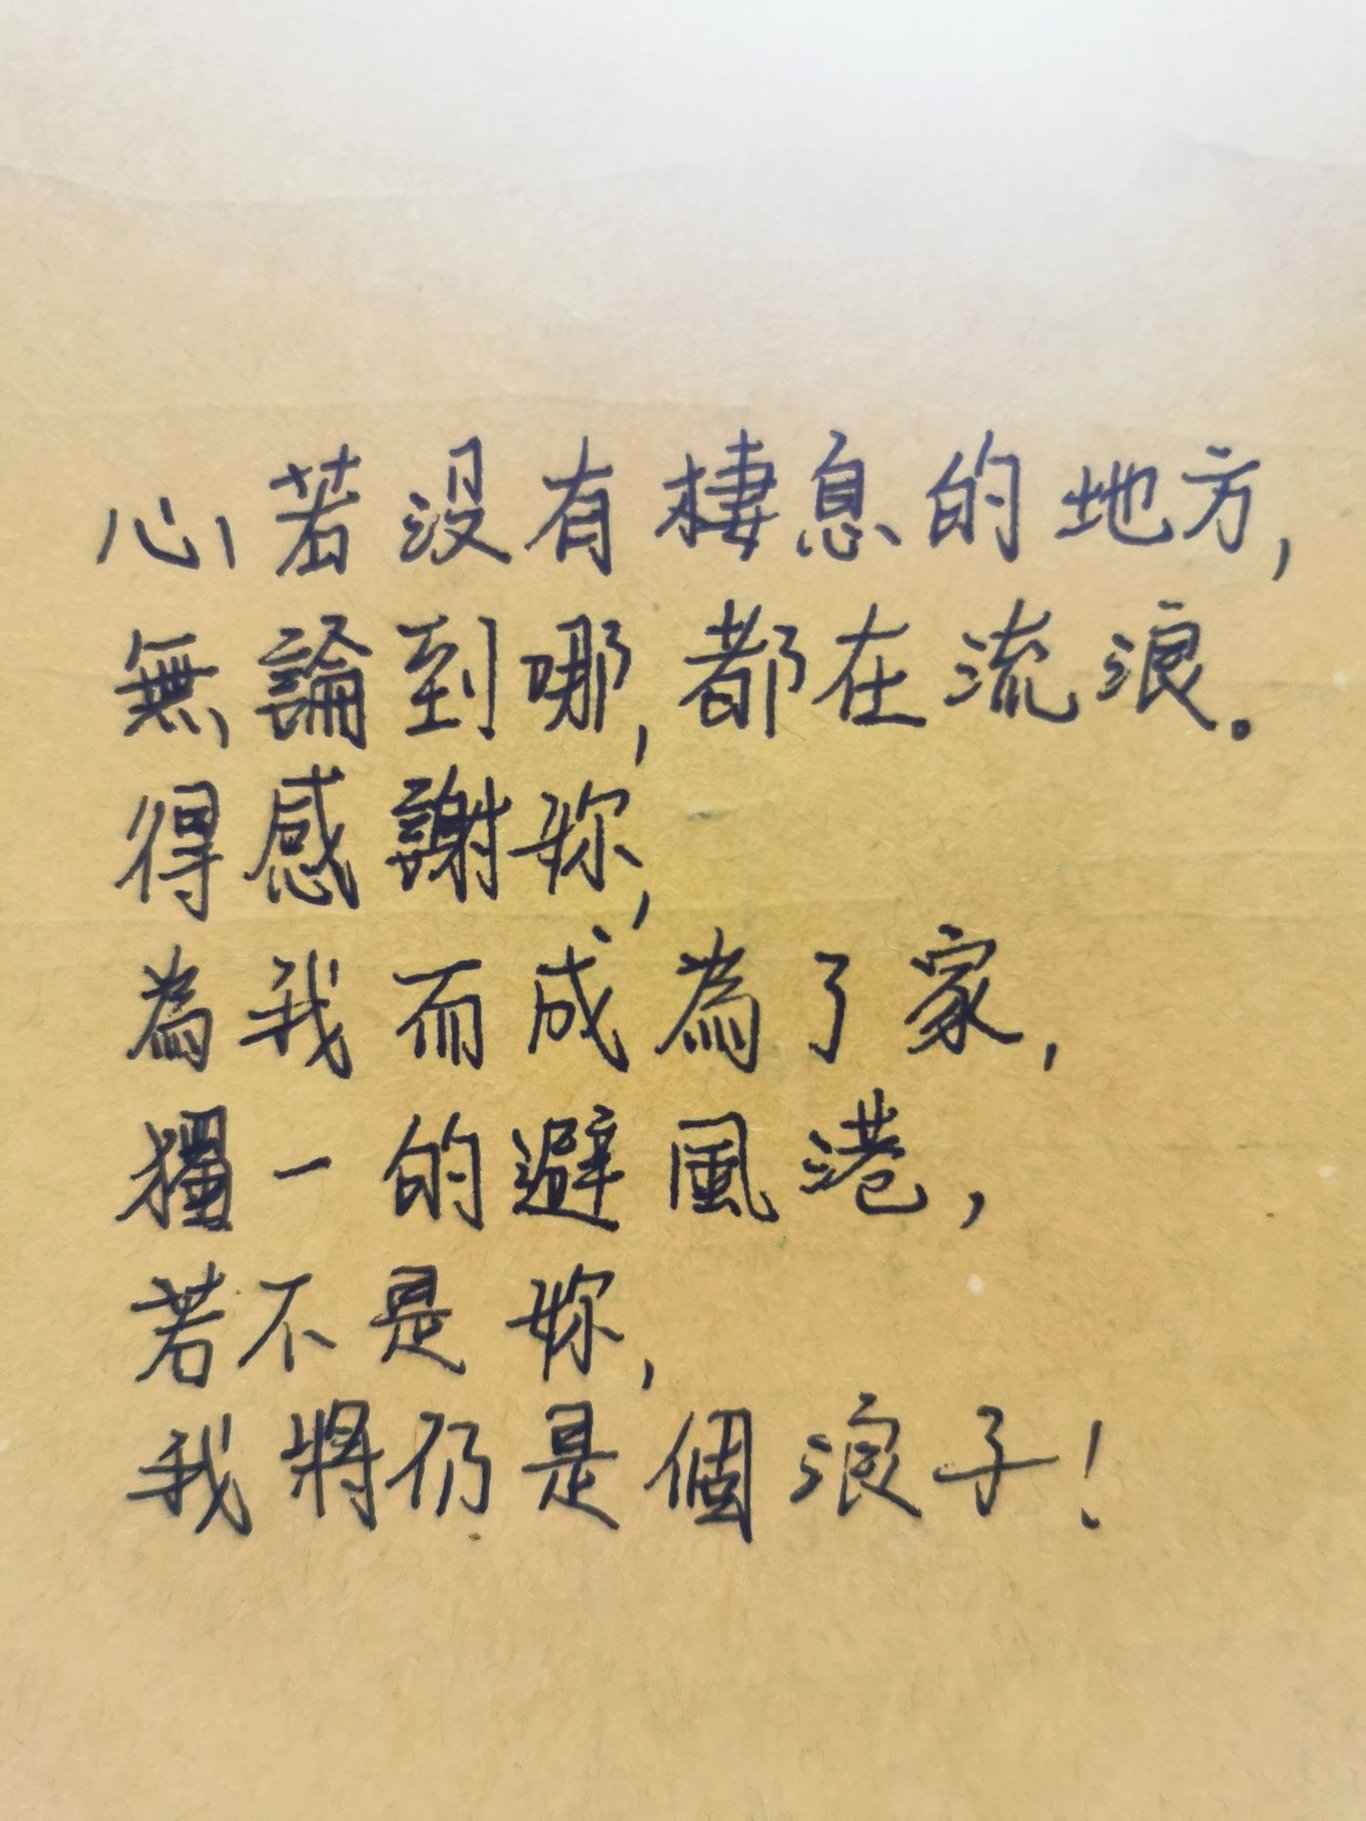 心若沒有棲息的地方，
無論到哪，都在流浪。
得感謝妳，
為我而成為了家，
獨一的避風港，
若不是妳，
我將仍是個浪子！